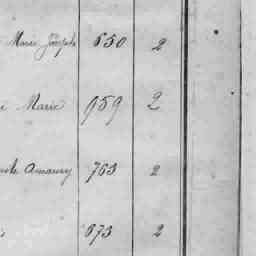 Marie Joseph 650 2
Marie 959 2
Amaury 763 2
673 2